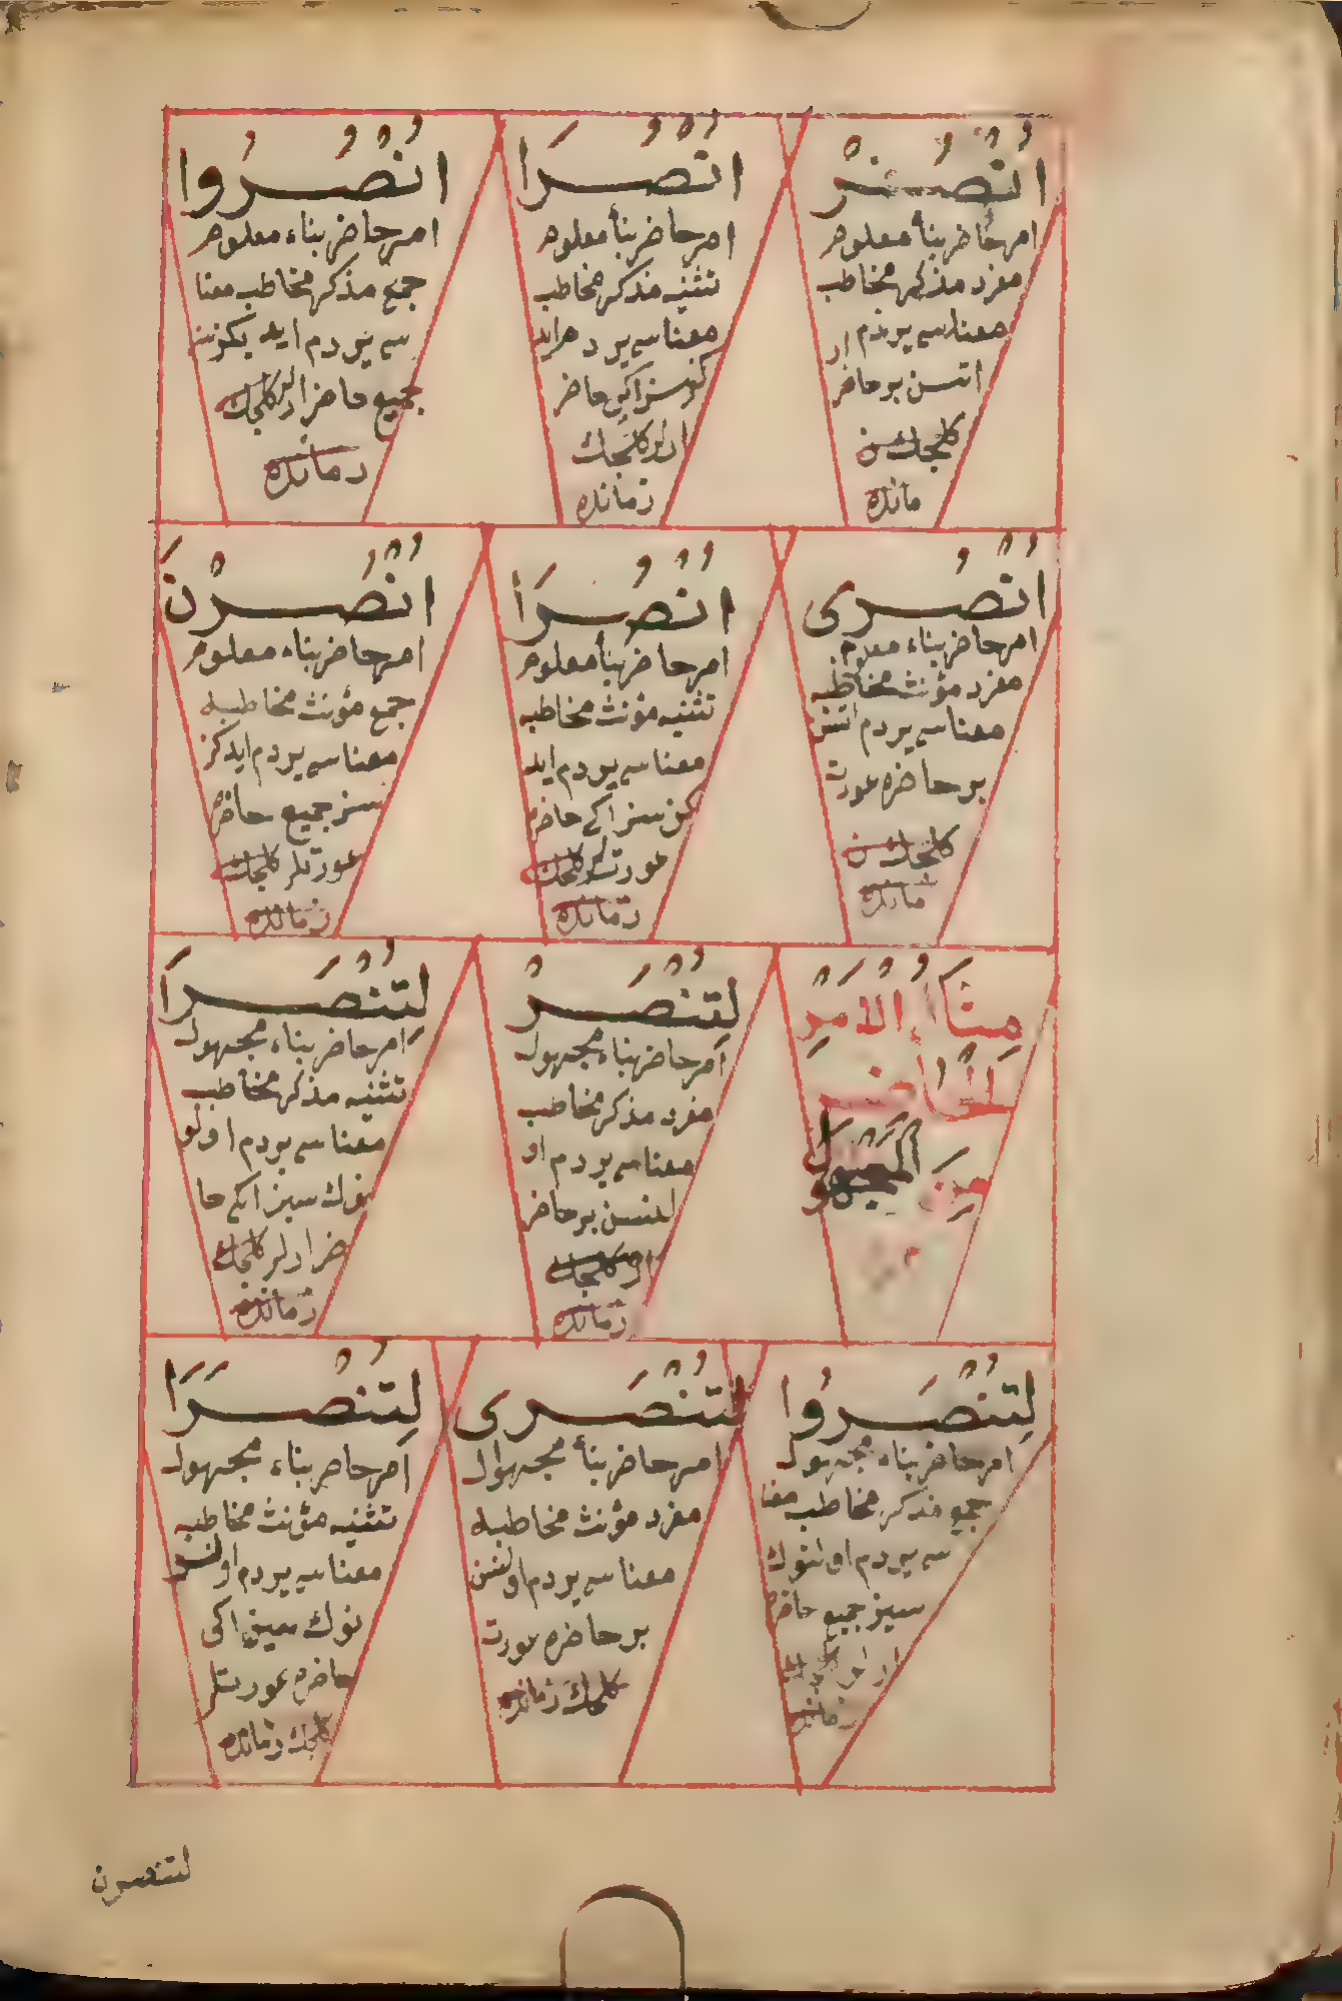 اُنْصُرْ
امر حاضر بناء معلوم
مفرد مذكر مخاطب
معناسى يردم ار
اتسن بر حاضر
كلجك سن
مانده
اُنْصُرَا
امر حاضر بناء معلوم
تثنيه مذكر مخاطب
معناسى يردم ايد
كز سز اكى حاضر
ارلر كلجك
زمانده
اُنْصُرُوا
امر حاضر بناء معلوم
جمع مذكر مخاطب معنا
سى يردم ايد يكز سز
جميع حاضر ارلر كلجك
زمانده
اُنْصُرِى
امر حاضر بناء معلوم
مفرد مؤنث مخاطبه
معناسى يردم اتسن
بر حاضره عورت
كلجك سن
مانده
اُنْصُرَا
امر حاضر بناء معلوم
تثنيه مؤنث مخاطبه
معناسى يردم ايد
كز سز اكى حاضره
عورتلر كلجك
زمانده
اُنْصُرْنَ
امر حاضر بناء معلوم
جمع مؤنث مخاطبه
معناسى يردم ايدكز
سز جميع حاضره
عورتلر كلجك
زمانده
مِثَالُ الْاَمْرِ
الْحَاضِرِ
مِنَ الْمَجْهُولِ
لِتُنْصَرْ
امر حاضر بناء مجهول
مفرد مذكر مخاطب
معناسى يردم او
لنسن بر حاضر
ار كلجك
زمانده
لِتُنْصَرَا
امر حاضر بناء مجهول
تثنيه مذكر مخاطب
معناسى يردم اولو
نوك سيز اكى حا
ضر ارلر كلجك
زمانده
لِتُنْصَرُوا
امر حاضر بناء مجهول
جمع مذكر مخاطب معنا
سى يردم اولنوك
سيز جميع حاضر
زمانده
لِتُنْصَرِى
امر حاضر بناء مجهول
مفرد مؤنث مخاطبه
معناسى يردم اولنسن
بر حاضره عورت
كلجك زمانده
لِتُنْصَرَا
امر حاضر بناء مجهول
تثنيه مؤنث مخاطبه
معناسى يردم اولنـ
نوك سيز اكى
حاضره عورتلر
كلجك زمانده
لتنصرن